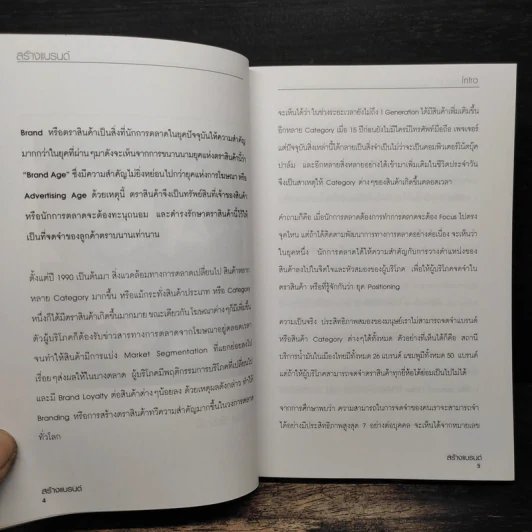 สร้างแบรนด์
Brand หรือตราสินค้าเป็นสิ่งที่นักการตลาดในยุคปัจจุบันให้ความสำคัญ
มากกว่าในยุคที่ผ่านๆมาดังจะเห็นจากการขนานนามยุคแห่งตราสินค้านี้ว่า
"Brand Age" ซึ่งมีความสำคัญไม่ยิ่งหย่อนไปกว่ายุคแห่งการโฆษณา หรือ
Advertising Age ด้วยเหตุนี้ ตราสินค้าจึงเป็นทรัพย์สินที่เจ้าของสินค้า
หรือนักการตลาดจะต้องทะนุถนอม และดำรงรักษาตราสินค้านี้ไว้ให้
เป็นที่จดจำของลูกค้าตราบนานเท่านาน
ตั้งแต่ปี 1990 เป็นต้นมา สิ่งแวดล้อมทางการตลาดเปลี่ยนไป สินค้าหลาก
หลาย Category มากขึ้น หรือแม้กระทั่งสินค้าประเภท หรือ Category
หนึ่งก็ได้มีตราสินค้าเกิดขึ้นมากมาย ขณะเดียวกันโฆษณาต่างๆก็มีเพิ่มขึ้น
ตัวผู้บริโภคก็ต้องรับข่าวสารทางการตลาดจากโฆษณาอยู่ตลอดเวลา
จนทำให้สินค้ามีการแบ่ง Market Segmentation ที่แยกย่อยลงไป
เรื่อยๆส่งผลให้ในบางตลาด ผู้บริโภคมีพฤติกรรมการบริโภคที่เปลี่ยนไป
และมี Brand Loyalty ต่อสินค้าต่างๆน้อยลง ด้วยเหตุผลดังกล่าว ทำให้
Branding หรือการสร้างตราสินค้าทวีความสำคัญมากขึ้นในวงการตลาด
ทั่วโลก
สร้างแบรนด์
4
Intro
จะเห็นได้ว่า ในช่วงระยะเวลายังไม่ถึง 1 Generation ได้มีสินค้าเพิ่มเติมขึ้น
อีกหลาย Category เมื่อ 15 ปีก่อนยังไม่มีใครมีโทรศัพท์มือถือ เพจเจอร์
แต่ปัจจุบันสิ่งเหล่านี้ได้กลายเป็นสิ่งจำเป็นไม่ว่าจะเป็นคอมพิวเตอร์โน๊ตบุ๊ค
ปาล์ม และอีกหลายสิ่งหลายอย่างได้เข้ามาเพิ่มเติมในชีวิตประจำวัน
จึงเป็นสาเหตุให้ Category ต่างๆของสินค้าเกิดขึ้นตลอดเวลา
คำถามก็คือ เมื่อนักการตลาดต้องการทำการตลาดจะต้อง Focus ไปตรง
จุดไหน แต่ถ้าได้ติดตามพัฒนาการทางการตลาดอย่างต่อเนื่อง จะเห็นว่า
ในยุคหนึ่ง นักการตลาดได้ให้ความสำคัญกับการวางตำแหน่งของ
สินค้าลงไปในจิตใจและหัวสมองของผู้บริโภค เพื่อให้ผู้บริโภคจดจำใน
ตราสินค้า หรือที่รู้จักกันว่า ยุค Positioning
ความเป็นจริง ประสิทธิภาพสมองของมนุษย์เราไม่สามารถจดจำแบรนด์
หรือสินค้า Category ต่างๆได้ทั้งหมด ตัวอย่างที่เห็นได้ก็คือ สถานี
บริการน้ำมันในเมืองไทยมีทั้งหมด 26 แบรนด์ แชมพูมีทั้งหมด 50 แบรนด์
แต่ถ้าให้ผู้บริโภคสามารถจดจำตราสินค้าทุกยี่ห้อได้ย่อมเป็นไปไม่ได้
จากการศึกษาพบว่า ความสามารถในการจดจำของคนเราจะสามารถจำ
ได้อย่างมีประสิทธิภาพสูงสุด 7 อย่างต่อบุคคล จะเห็นได้จากหมายเลข
สร้างแบรนด์
5